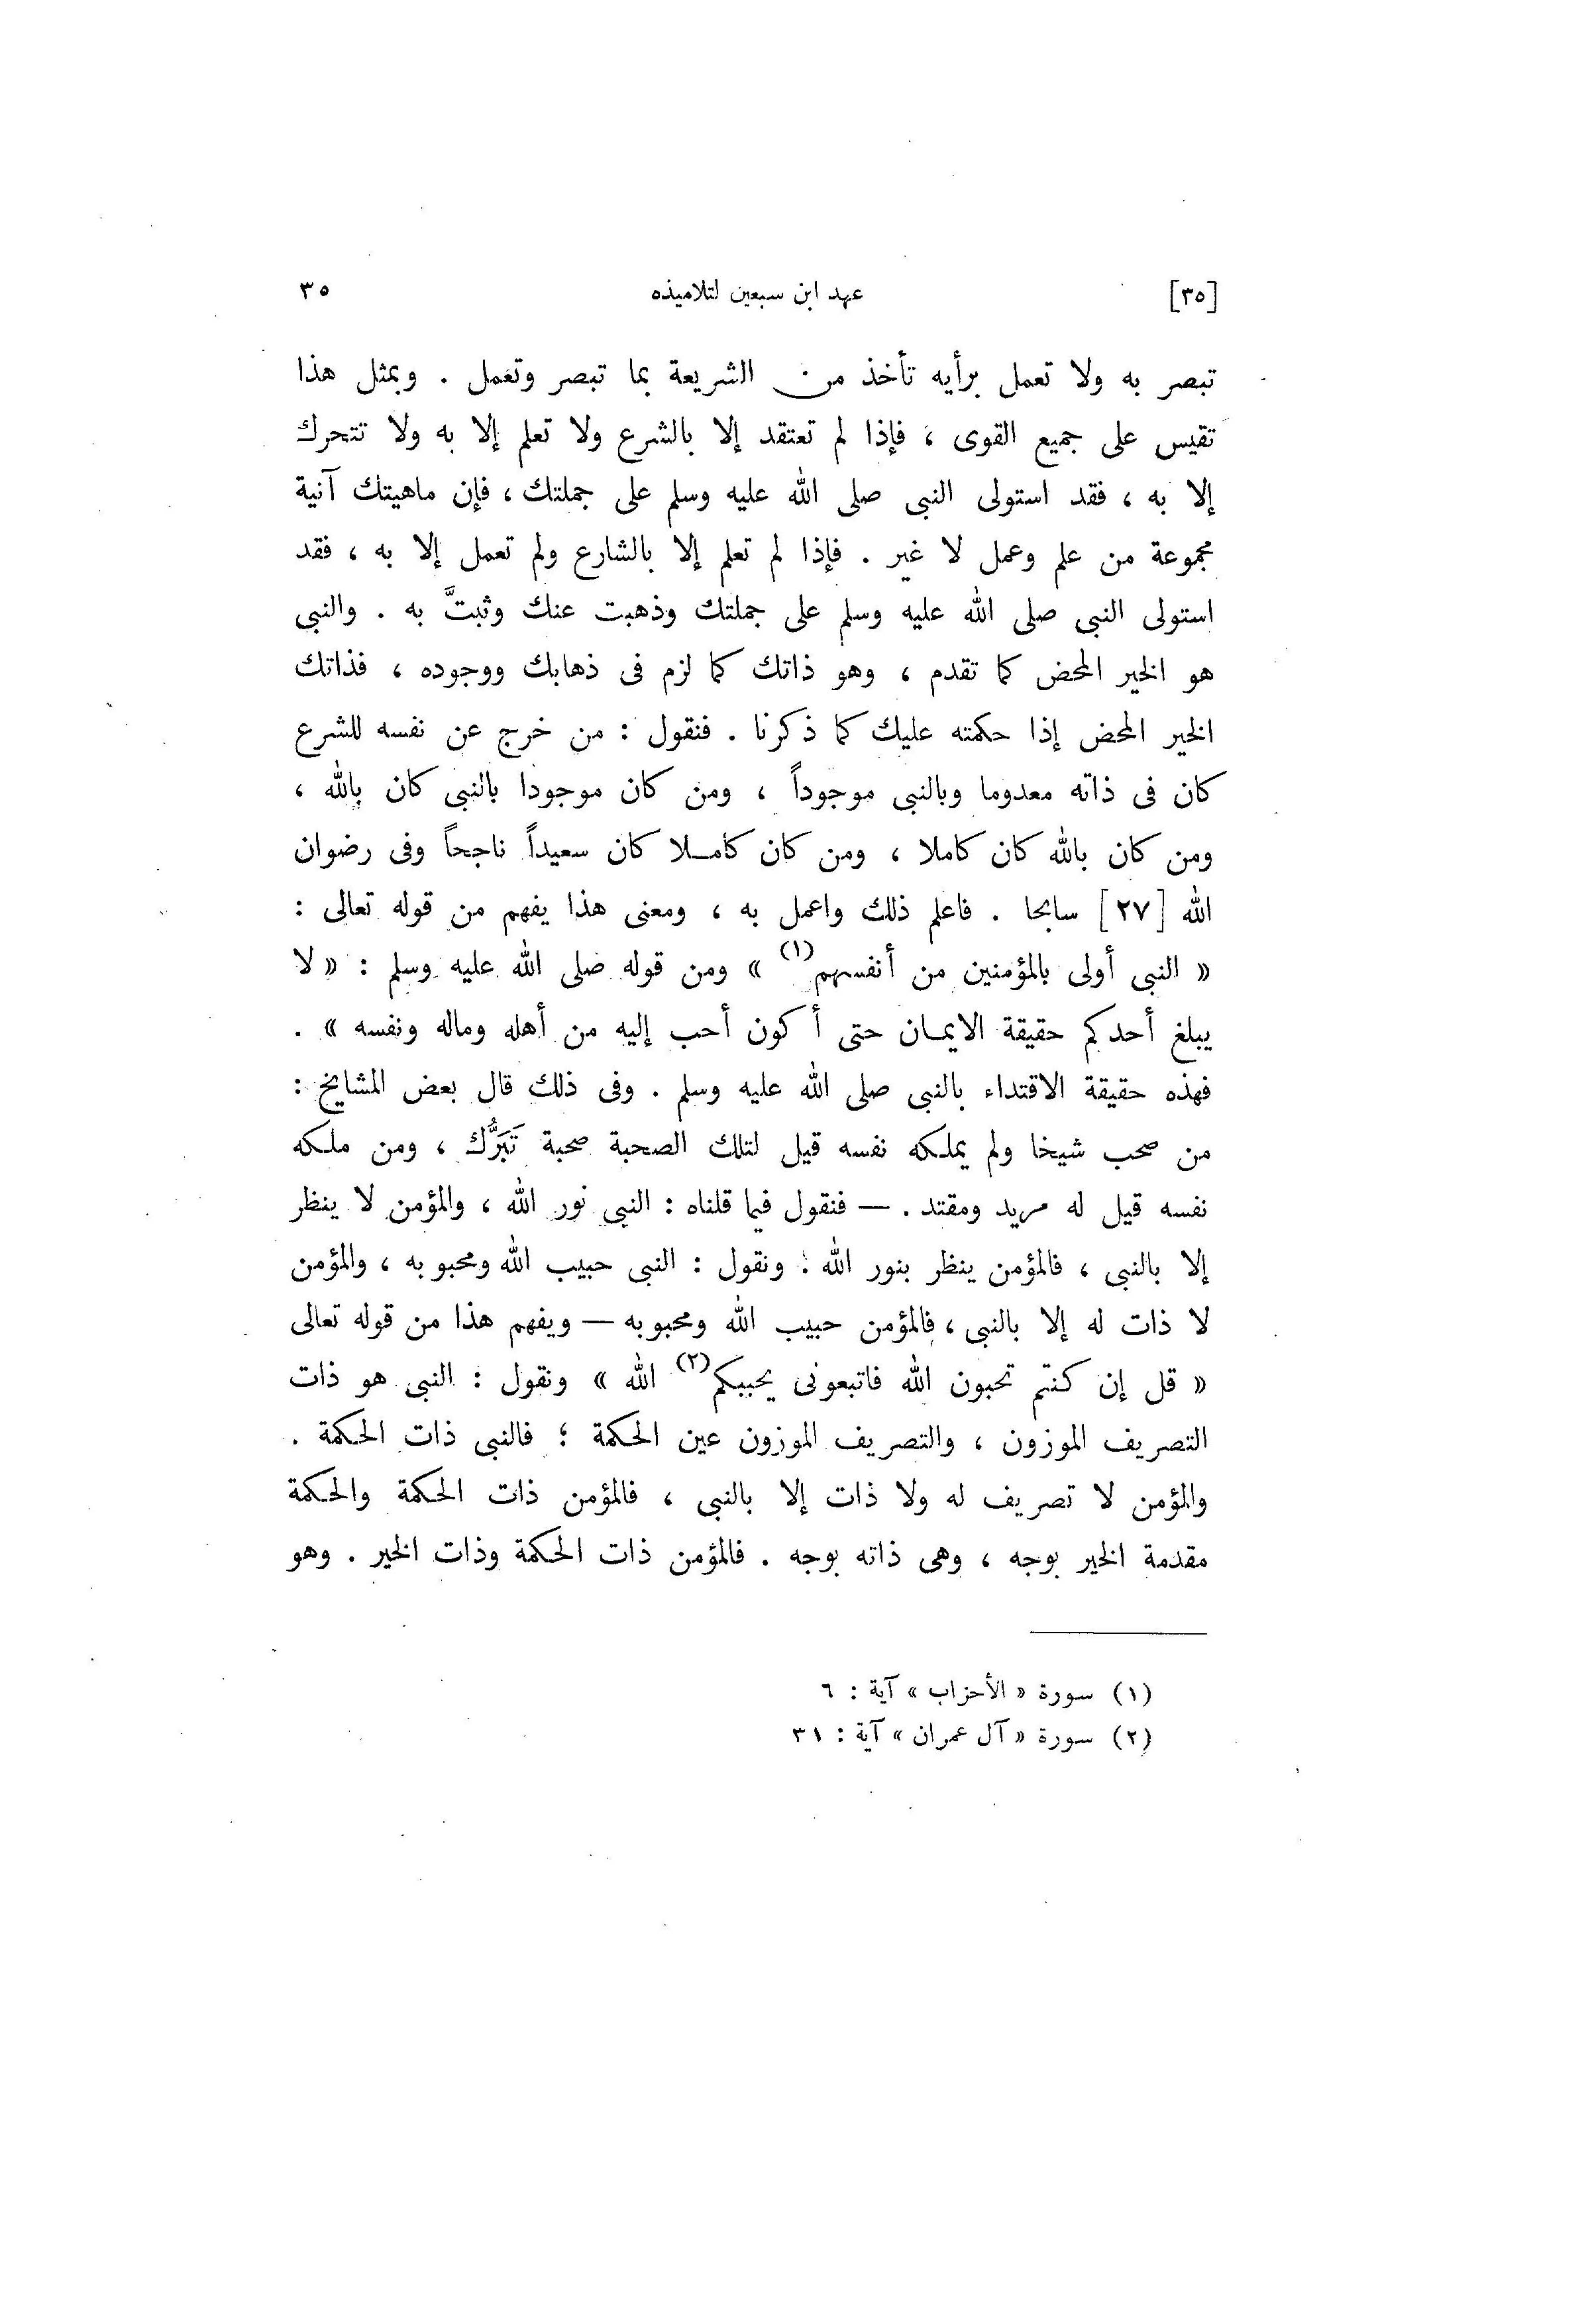 [٣٥] عهد ابن سبعين لتلاميذه ٣٥
تبصر به ولا تعمل برأيه تأخذ من الشريعة بما تبصر وتعمل . وبمثل هذا
تقيس على جميع القوى ، فإذا لم تعتقد إلا بالشرع ولا تعلم إلا به ولا تتحرك
إلا به ، فقد استولى النبى صلى الله عليه وسلم على جملتك ، فإن ماهيتك آنية
مجموعة من علم وعمل لا غير . فإذا لم تعلم إلا بالشارع ولم تعمل إلا به ، فقد
استولى النبى صلى الله عليه وسلم على جملتك وذهبت عنك وثبتَّ به . والنبى
هو الخير المحض كما تقدم ، وهو ذاتك كما لزم فى ذهابك ووجوده ، فذاتك
الخير المحض إذا حكمته عليك كما ذكرنا . فنقول : من خرج عن نفسه للشرع
كان فى ذاته معدوما وبالنبى موجوداً ، ومن كان موجودا بالنبى كان بالله ،
ومن كان بالله كان كاملا ، ومن كان كامـلا كان سعيداً ناجحاً وفى رضوان
الله [٢٧] سابحا . فاعلم ذلك واعمل به ، ومعنى هذا يفهم من قوله تعالى :
« النبى أولى بالمؤمنين من أنفسهم(١) » ومن قوله صلى الله عليه وسلم : « لا
يبلغ أحدكم حقيقة الايمـان حتى أكون أحب إليه من أهله وماله ونفسه » .
فهذه حقيقة الاقتداء بالنبى صلى الله عليه وسلم . وفى ذلك قال بعض المشايخ :
من صحب شيخا ولم يملـكه نفسه قيل لتلك الصحبة صحبة تَبَرُّك ، ومن ملـكه
نفسه قيل له مريد ومقتد . — فنقول فيما قلناه : النبى نور الله ، والمؤمن لا ينظر
إلا بالنبى ، فالمؤمن ينظر بنور الله . ونقول : النبى حبيب الله ومحبوبه ، والمؤمن
لا ذات له إلا بالنبى ، فالمؤمن حبيب الله ومحبوبه — ويفهم هذا من قوله تعالى
« قل إن كنتم تحبون الله فاتبعونى يحببكم(٢) الله » ونقول : النبى هو ذات
التصريف الموزون ، والتصريف الموزون عين الحكمة ؛ فالنبى ذات الحكمة .
والمؤمن لا تصريف له ولا ذات إلا بالنبى ، فالمؤمن ذات الحكمة والحكمة
مقدمة الخير بوجه ، وهى ذاته بوجه . فالمؤمن ذات الحكمة وذات الخير . وهو
(١) سورة « الأحزاب » آية : ٦
(٢) سورة « آل عمران » آية : ٣١